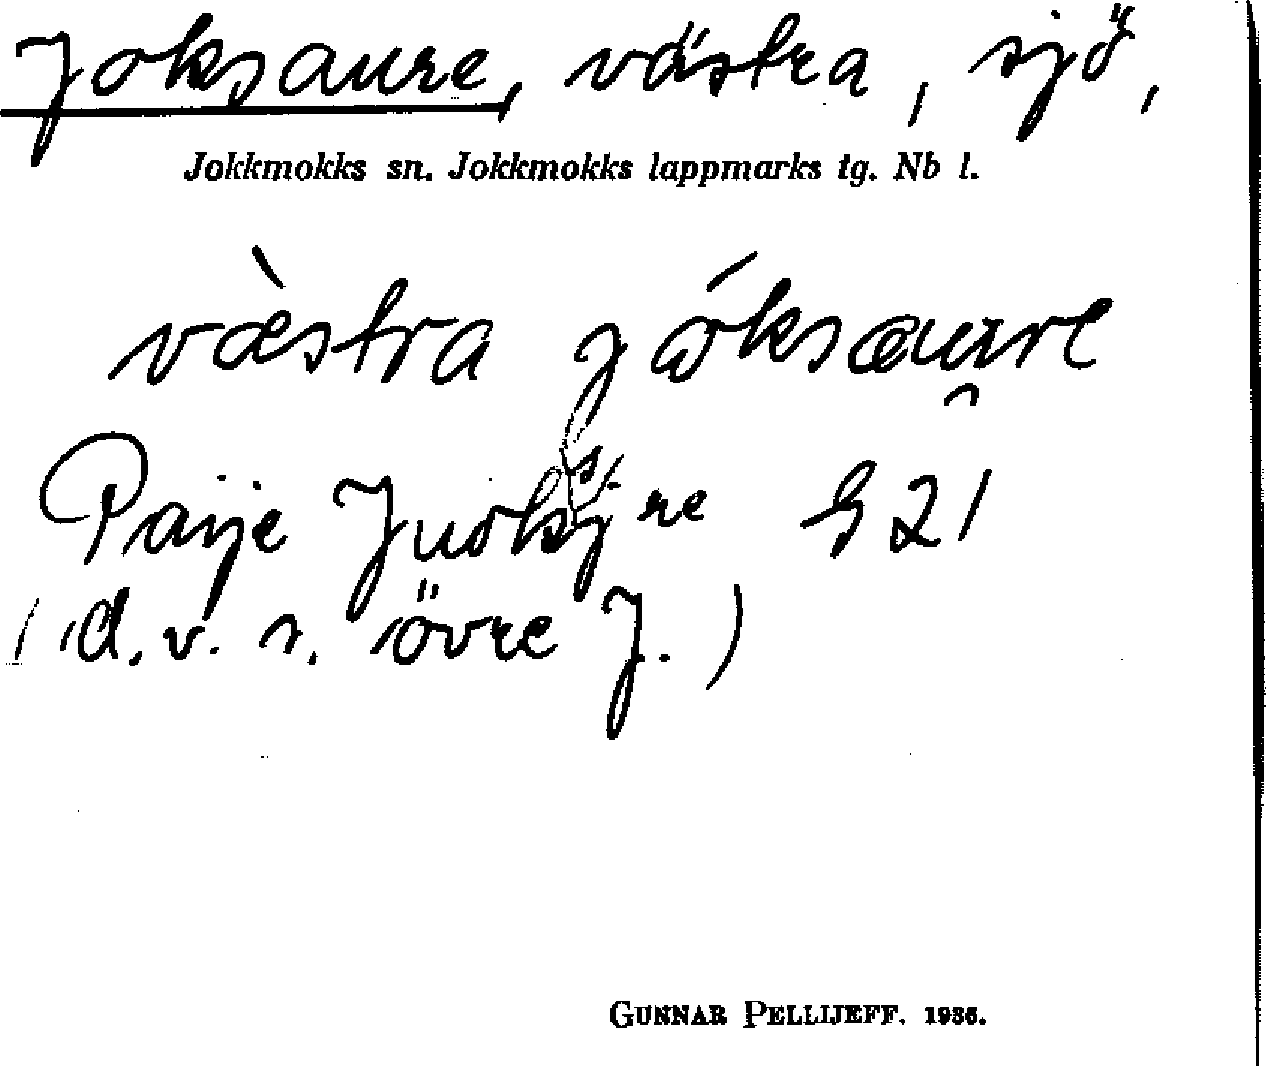 Joksaure, västra, sjö,
Jokkmokks sn. Jokkmokks lappmarks tg. Nb l.
væ̀stra jóksaure
Paije re G 21
(d.v.s. övre J.)
GUNNAR PELLIJEFF. 1936.